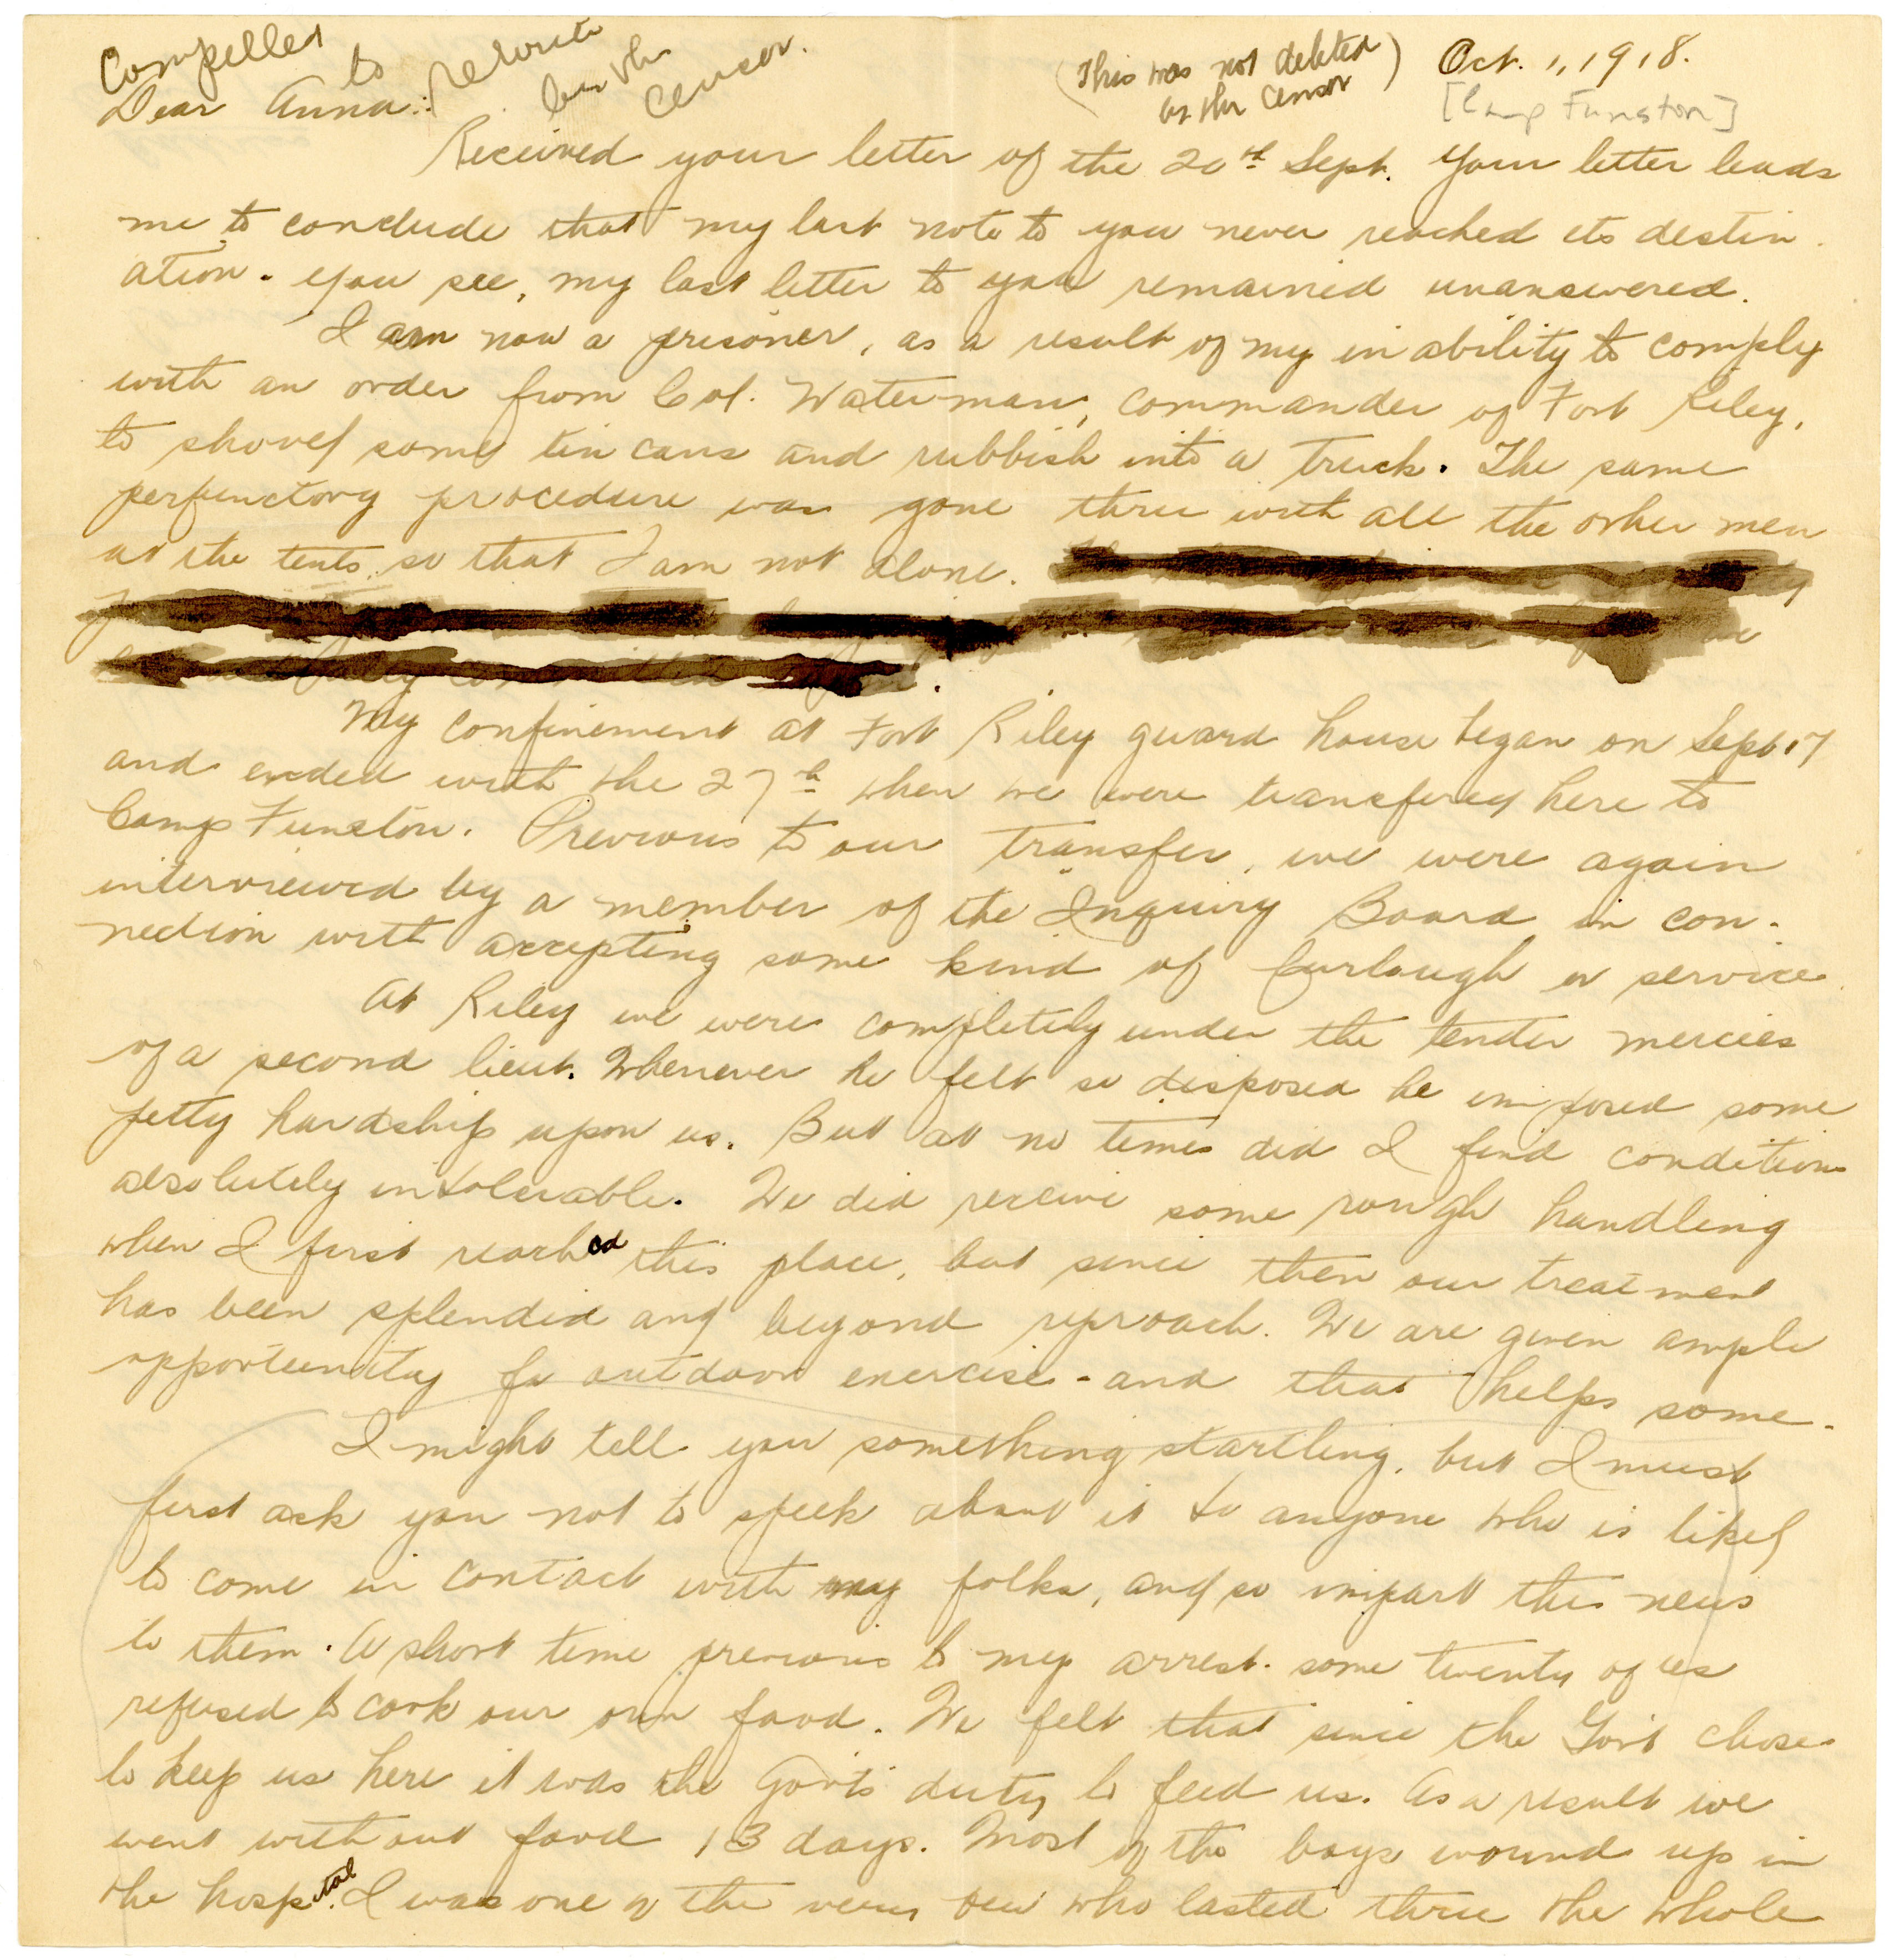 Compelled
to rewrite
by the
censor.
(This was not deleted
by the censor)
Oct. 1, 1918.
[Camp Funston]
Dear Anna:
Received your letter of the 20th Sept. Your letter leads
me to conclude that my last note to you never reached its destin-
ation. You see, my last letter to you remained unanswered.
I am now a prisoner, as a result of my inability to comply
with an order from Col. Waterman, commander of Fort Riley,
to shovel some tin cans and rubbish into a truck. The same
perfunctory procedure was gone thru with all the other men
at the tents so that I am not alone.
My confinement at Fort Riley guard house began on Sept 17
and ended with the 27th when we were transfered here to
Camp Funston. Previous to our transfer, we were again
interviewed by a member of the Inquiry Board in con-
nection with accepting some kind of furlough or service.
At Riley we were completely under the tender mercies
of a second lieut. Whenever he felt so disposed he imposed some
petty hardship upon us. But at no times did I find conditions
absolutely intolerable. We did receive some rough handling
when I first reached this place, but since then our treatment
has been splendid and beyond reproach. We are given ample
opportunity for outdoor exercise - and that helps some.
I might tell you something startling, but I must
first ask you not to speek about it to anyone who is likely
to come in contact with my folks, and so impart this news
to them. A short time previous to my arrest some twenty of us
refused to cook our own food. We felt that since the Gov't chose
to keep us here it was the Gov't's duty to feed us. As a result we
went without food 13 days. Most of the boys wound up in
the hospital. I was one of the very few who lasted thru the whole